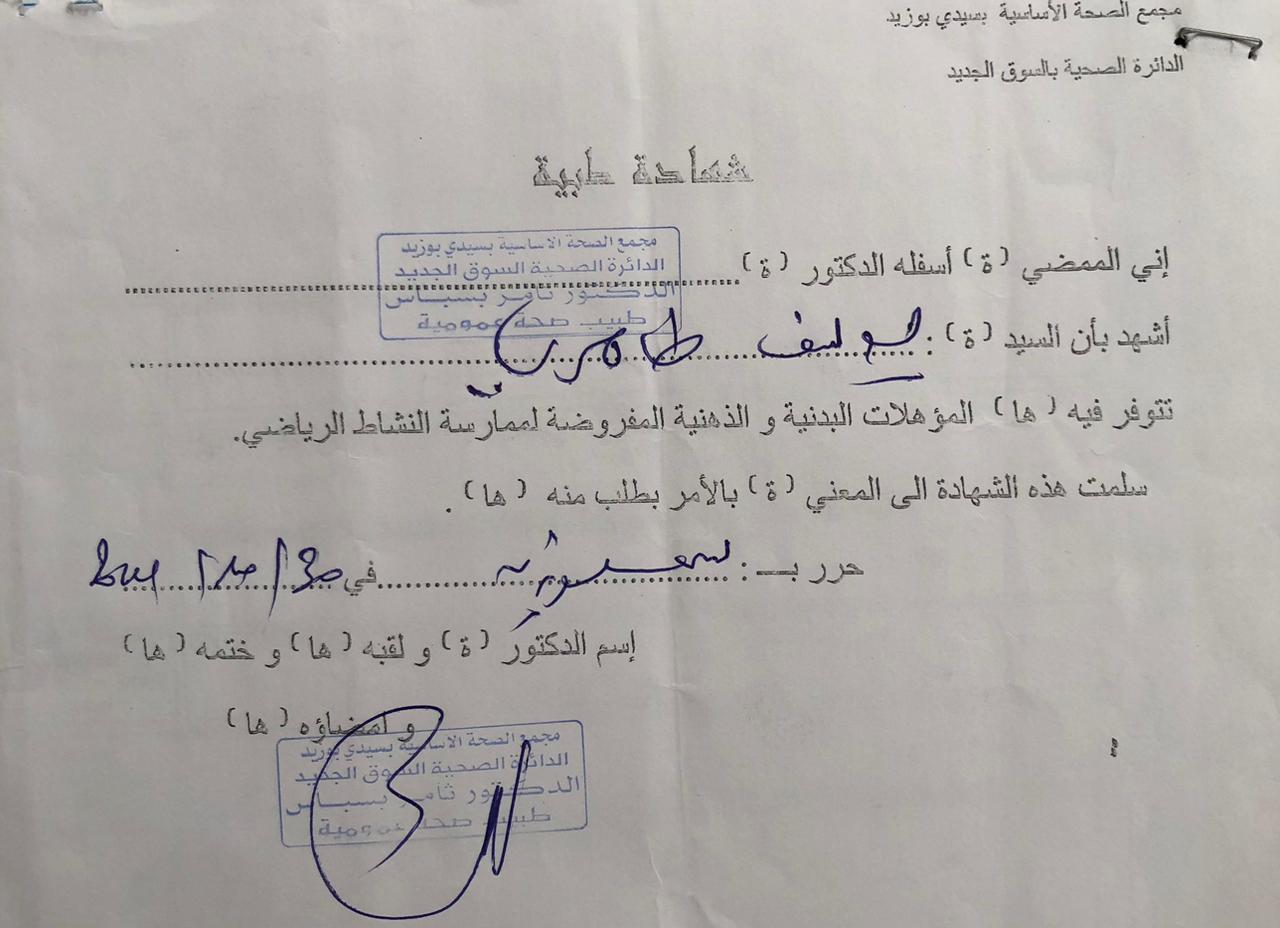 مجمع الصحة الأساسية بسيدي بوزيد
الدائرة الصحية بالسوق الجديد
شهادة طبية
إني الممضي (ة) أسفله الدكتور (ة)
مجمع الصحة الاساسية بسيدي بوزيد
الدائرة الصحية السوق الجديد
الدكتور ثامر بسباس
طبيب صحة عمومية
أشهد بأن السيد (ة) :
تتوفر فيه (ها) المؤهلات البدنية و الذهنية المفروضة لممارسة النشاط الرياضي.
سلمت هذه الشهادة الى المعني (ة) بالأمر بطلب منه (ها) .
حرر بـ : في
إسم الدكتور (ة) و لقبه (ها) و ختمه (ها)
و امضاؤه (ها)
مجمع الصحة الاساسية بسيدي بوزيد
الدائرة الصحية السوق الجديد
الدكتور ثامر بسباس
طبيب صحة عمومية